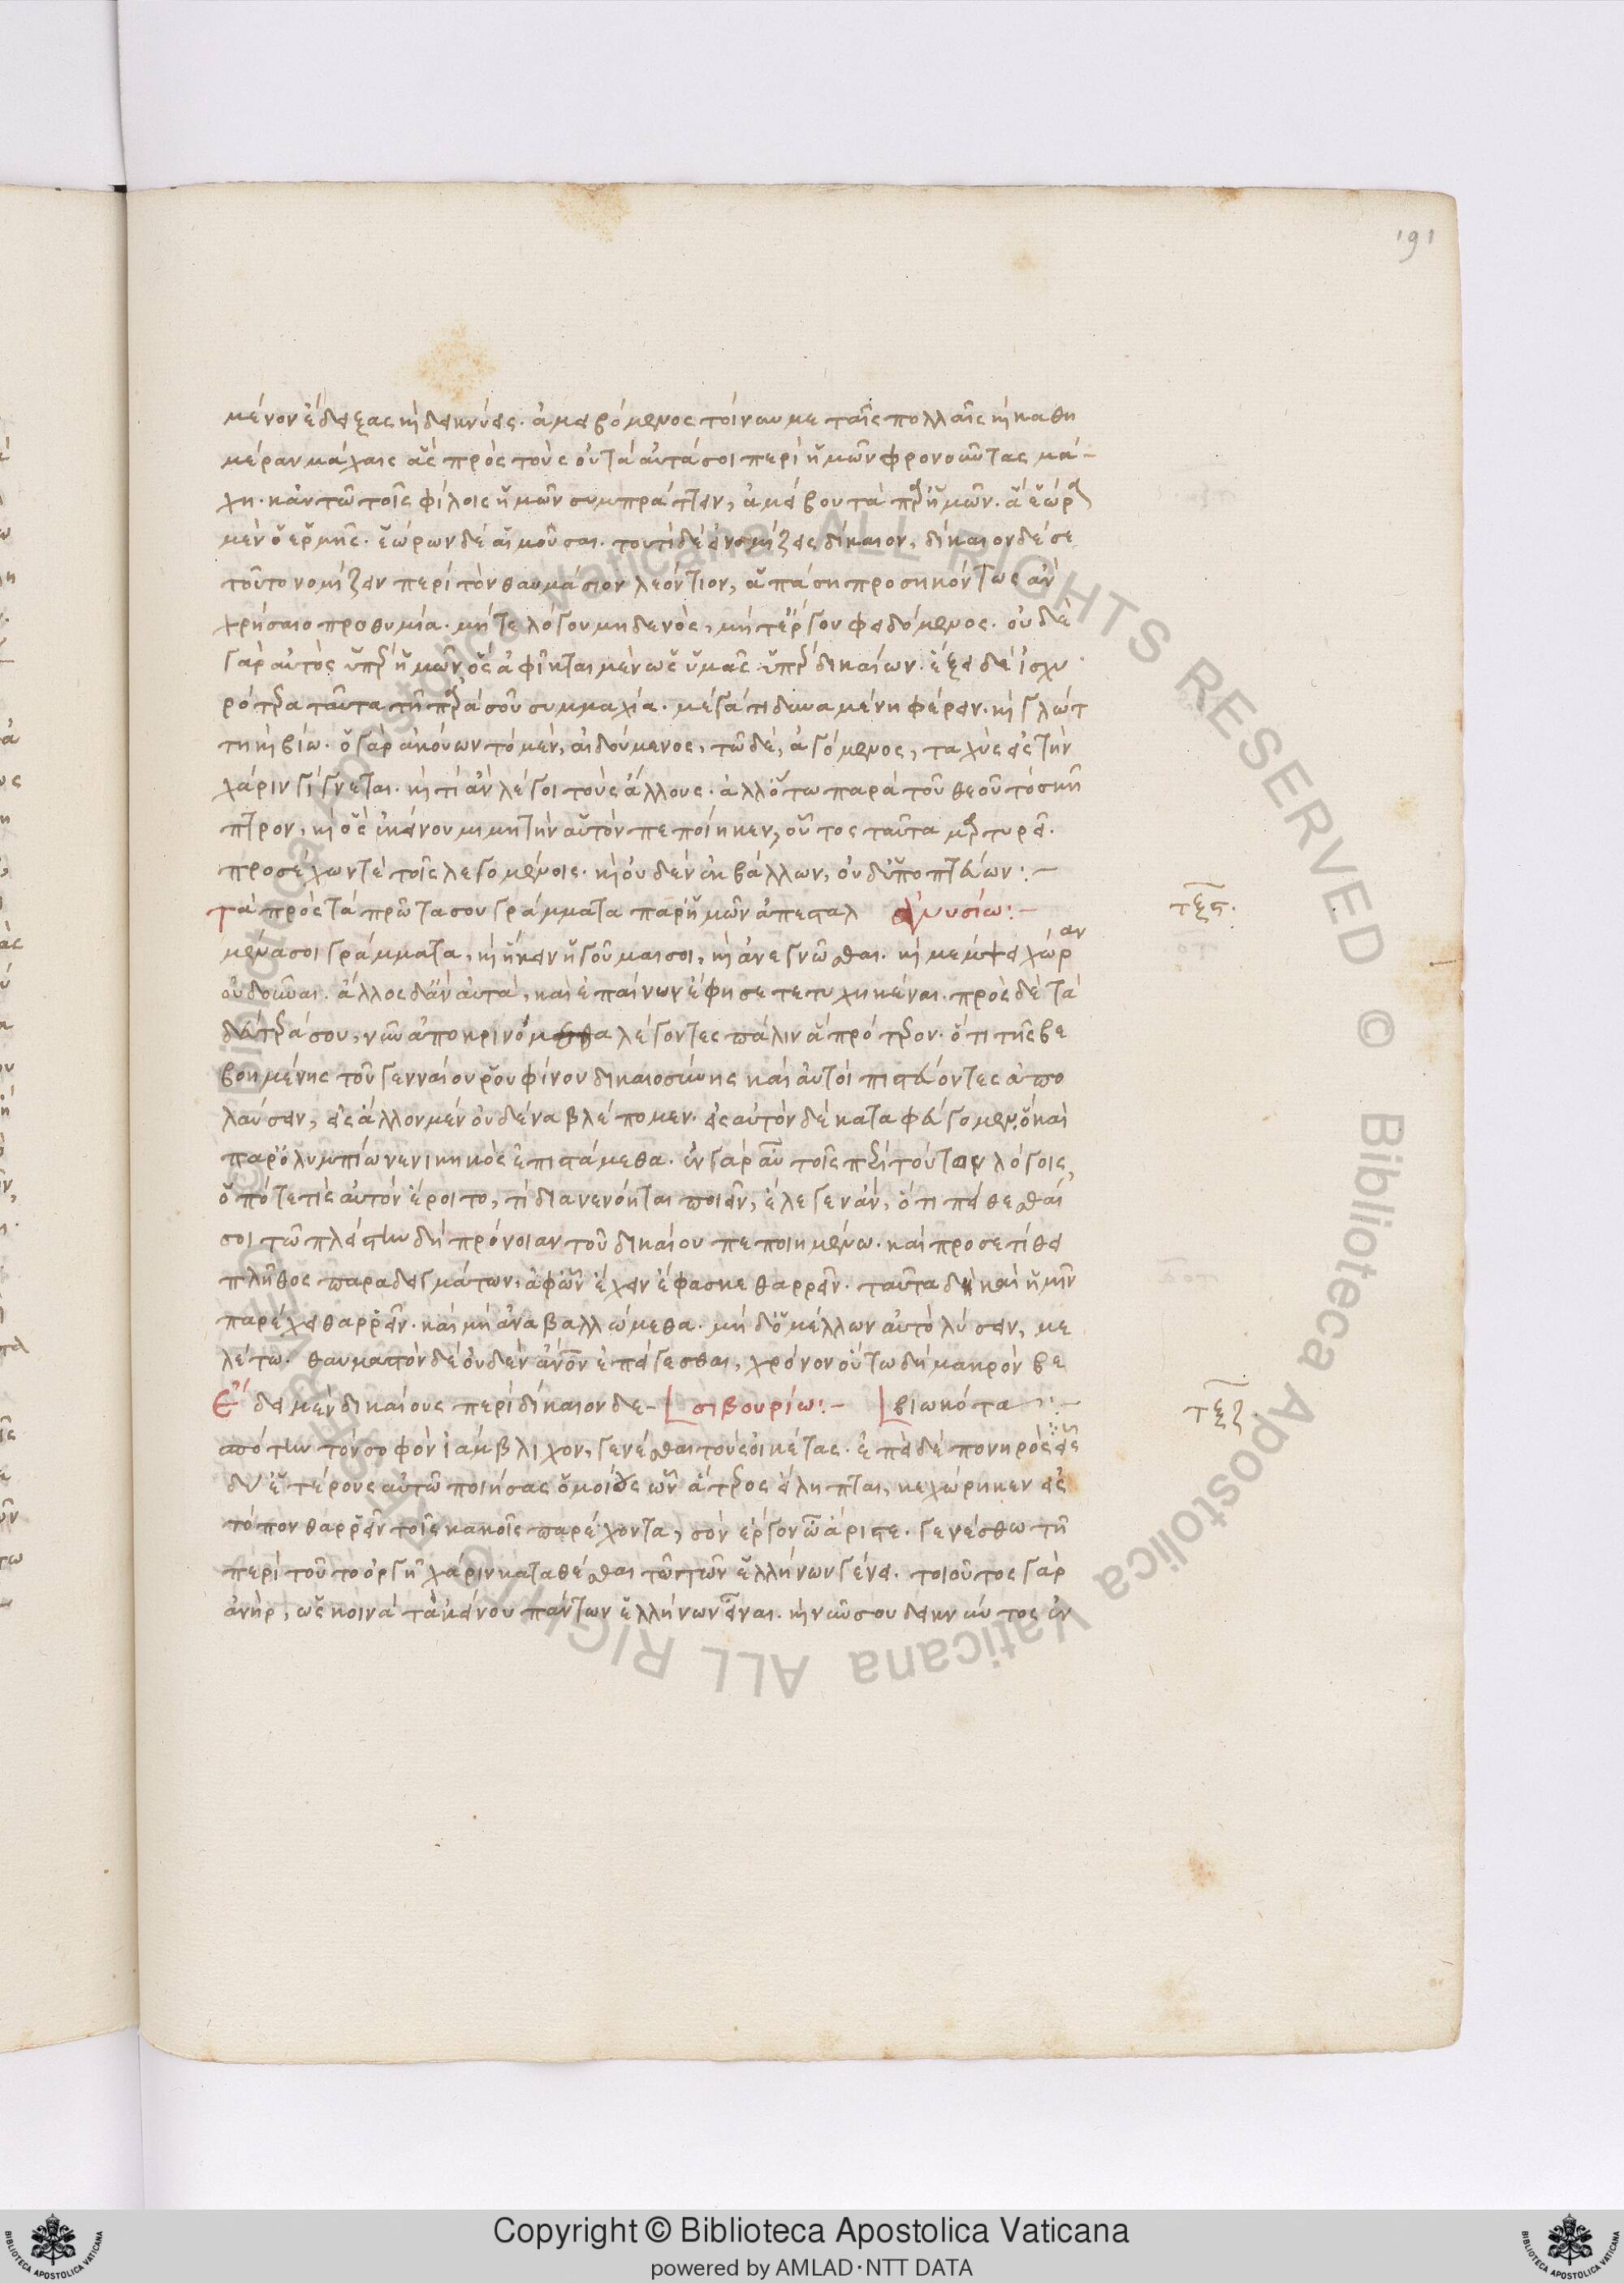 191
μένον ἔδειξας καὶ δεικνύεις. ἀμειβόμενος τοίνυν με ταῖς πολλαῖς καὶ καθη
μέραν μάχαις ἃς πρὸς τοὺς οὐ ταὐτά σοι περὶ ἡμῶν φρονοῦντας μά-
χη. κἀν τῶ τοῖς φίλοις ἡμῶν συμπράττειν, ἀμείβου τὰ παρ' ἡμῶν. ἃ ἑώρα
μὲν ὁ ἑρμῆς. ἑώρων δὲ αἱ μοῦσαι. τουτὶ δὲ ἐνόμιζες δίκαιον, δίκαιον δέ σε
τοῦτο νομίζειν περὶ τὸν θαυμάσιον λεόντιον, ἁπάση προσηκόντως ἂν
χρήσαιο προθυμία. μήτε λόγου μηδενὸς, μήτ' ἔργου φειδόμενος. οὐδὲ
γὰρ αὐτὸς ὑπὲρ ἡμῶν ὃς ἀφῖκται μὲν ὡς ὑμᾶς ὑπὲρ δικαίων. ἕξει δὲ ἰσχυ
ρότερα ταῦτα τῆ παρὰ σοῦ συμμαχία. μέγά τι δυναμένη φέρειν. καὶ γλώτ
τη καὶ βίω. ὁ γὰρ ἀκούων τὸ μὲν, αἰδούμενος, τῶ δὲ, ἀγόμενος, ταχὺς εἰς τὴν
χάριν γίγνεται. καὶ τί ἂν λέγοι τοὺς ἄλλους. ἀλλ' ὅτω παρὰ τοῦ θεοῦ τὸ σκῆ
πτρον, καὶ ὃς ἐκείνου μιμητὴν αὑτὸν πεποίηκεν, οὗτος ταῦτα μαρτυρεῖ.
προσέχων τὲ τοῖς λεγομένοις. καὶ οὐδὲν ἐκβάλλων, οὐδ' ὑποπτεύων:-
Τὰ πρὸς τὰ πρῶτά σου γράμματα παρ' ἡμῶν ἀπεσταλ ἀνυσίω:- τξϛ.
μένα σοι γράμματα, καὶ ἥκειν ἡγοῦμαι σοι, καὶ ἀνεγνῶσθαι. καὶ μέμψει χώραν
οὐ δοῦναι. ἄλλος δ' ἂν αὐτὰ, καὶ ἐπαίνων ἔφησε τετυχηκέναι. πρὸς δὲ τὰ
δεύτερά σου, νῦν ἀποκρινόμεθα λέγοντες πάλιν ἃ πρότερον. ὅτι τῆς βε
βοημένης τοῦ γενναίου ῥουφίνου δικαιοσύνης καὶ αὐτοὶ πιστεύοντες ἀπο
λαύσειν, εἰς ἄλλον μὲν οὐδένα βλέπομεν. εἰς αὐτὸν δὲ καταφεύγομεν, ὃ καὶ
παρ' ὀλυμπίω νενικηκὸς ἐπιστάμεθα. ἐν γὰρ αὖ τοῖς περὶ τούτων λόγοις,
ὁπότε τίς αὐτὸν ἔροιτο, τί διανενόηται ποιεῖν, ἔλεγεν ἂν, ὅτι πείθεσθαί
σοι τῶ πλείστην δὴ πρόνοιαν τοῦ δικαίου πεποιημένω. καὶ προσετίθει
πλῆθος παραδειγμάτων, ἀφ' ὧν ἔχειν ἔφασκε θαρρεῖν. ταῦτα δὴ καὶ ἡμῖν
παρέχει θαρρεῖν. καὶ μὴ ἀναβαλλώμεθα. μὴ δ' ὁ μέλλων αὐτὸ λύσειν, με
λέτω. θαυμαστὸν δὲ οὐδὲν ἀνῦν ἐπείγεσθαι, χρόνον οὕτω δὴ μακρὸν βε
Εἴδει μὲν δικαίους περὶ δίκαιον δε- σιβουρίω:- βιωκότα:- τξζ.
σπότην τὸν σοφὸν ἰάμβλιχον, γενέσθαι τοὺς οἰκέτας. ἐπεὶ δὲ πονηρὸς εἷς
δι' ἑτέρους αὑτῶ ποιήσας ὁμοίους ὧν ἅτερος εἴληπται, κεχώρηκεν εἰς
τόπον θαρρεῖν τοῖς κακοῖς παρέχοντα, σὸν ἔργον ὦ ἄριστε. γενέσθω τῆ
περὶ τοῦτο ὀργῆ χάριν καταθέσθαι τῶ τῶν ἑλλήνων γένει. τοιοῦτος γὰρ
ἀνὴρ, ὡς κοινὰ τἀκείνου πάντων ἑλλήνων εἶναι. καὶ νῦν σου δεικνύντος ἐν
Copyright © Biblioteca Apostolica Vaticana
powered by AMLAD·NTT DATA